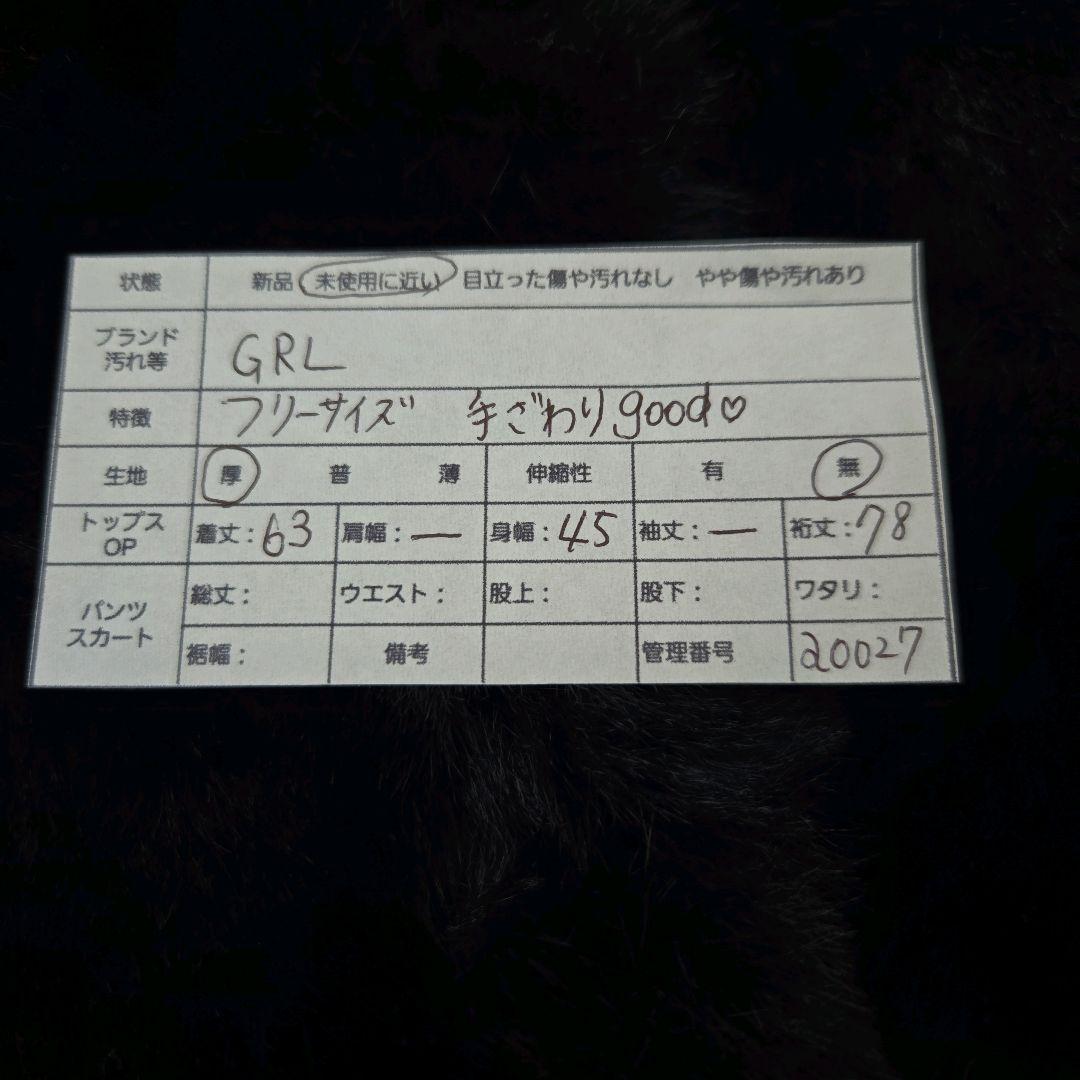 状態 新品 未使用に近い 目立った傷や汚れなし やや傷や汚れあり
ブランド
汚れ等 GRL
特徴 フリーサイズ 手ざわりgood♡
生地 厚 普 薄 伸縮性 有 無
トップス
OP 着丈:63 肩幅:― 身幅:45 袖丈:― 裄丈:78
パンツ
スカート 総丈: ウエスト: 股上: 股下: ワタリ:
裾幅: 備考 管理番号 20027